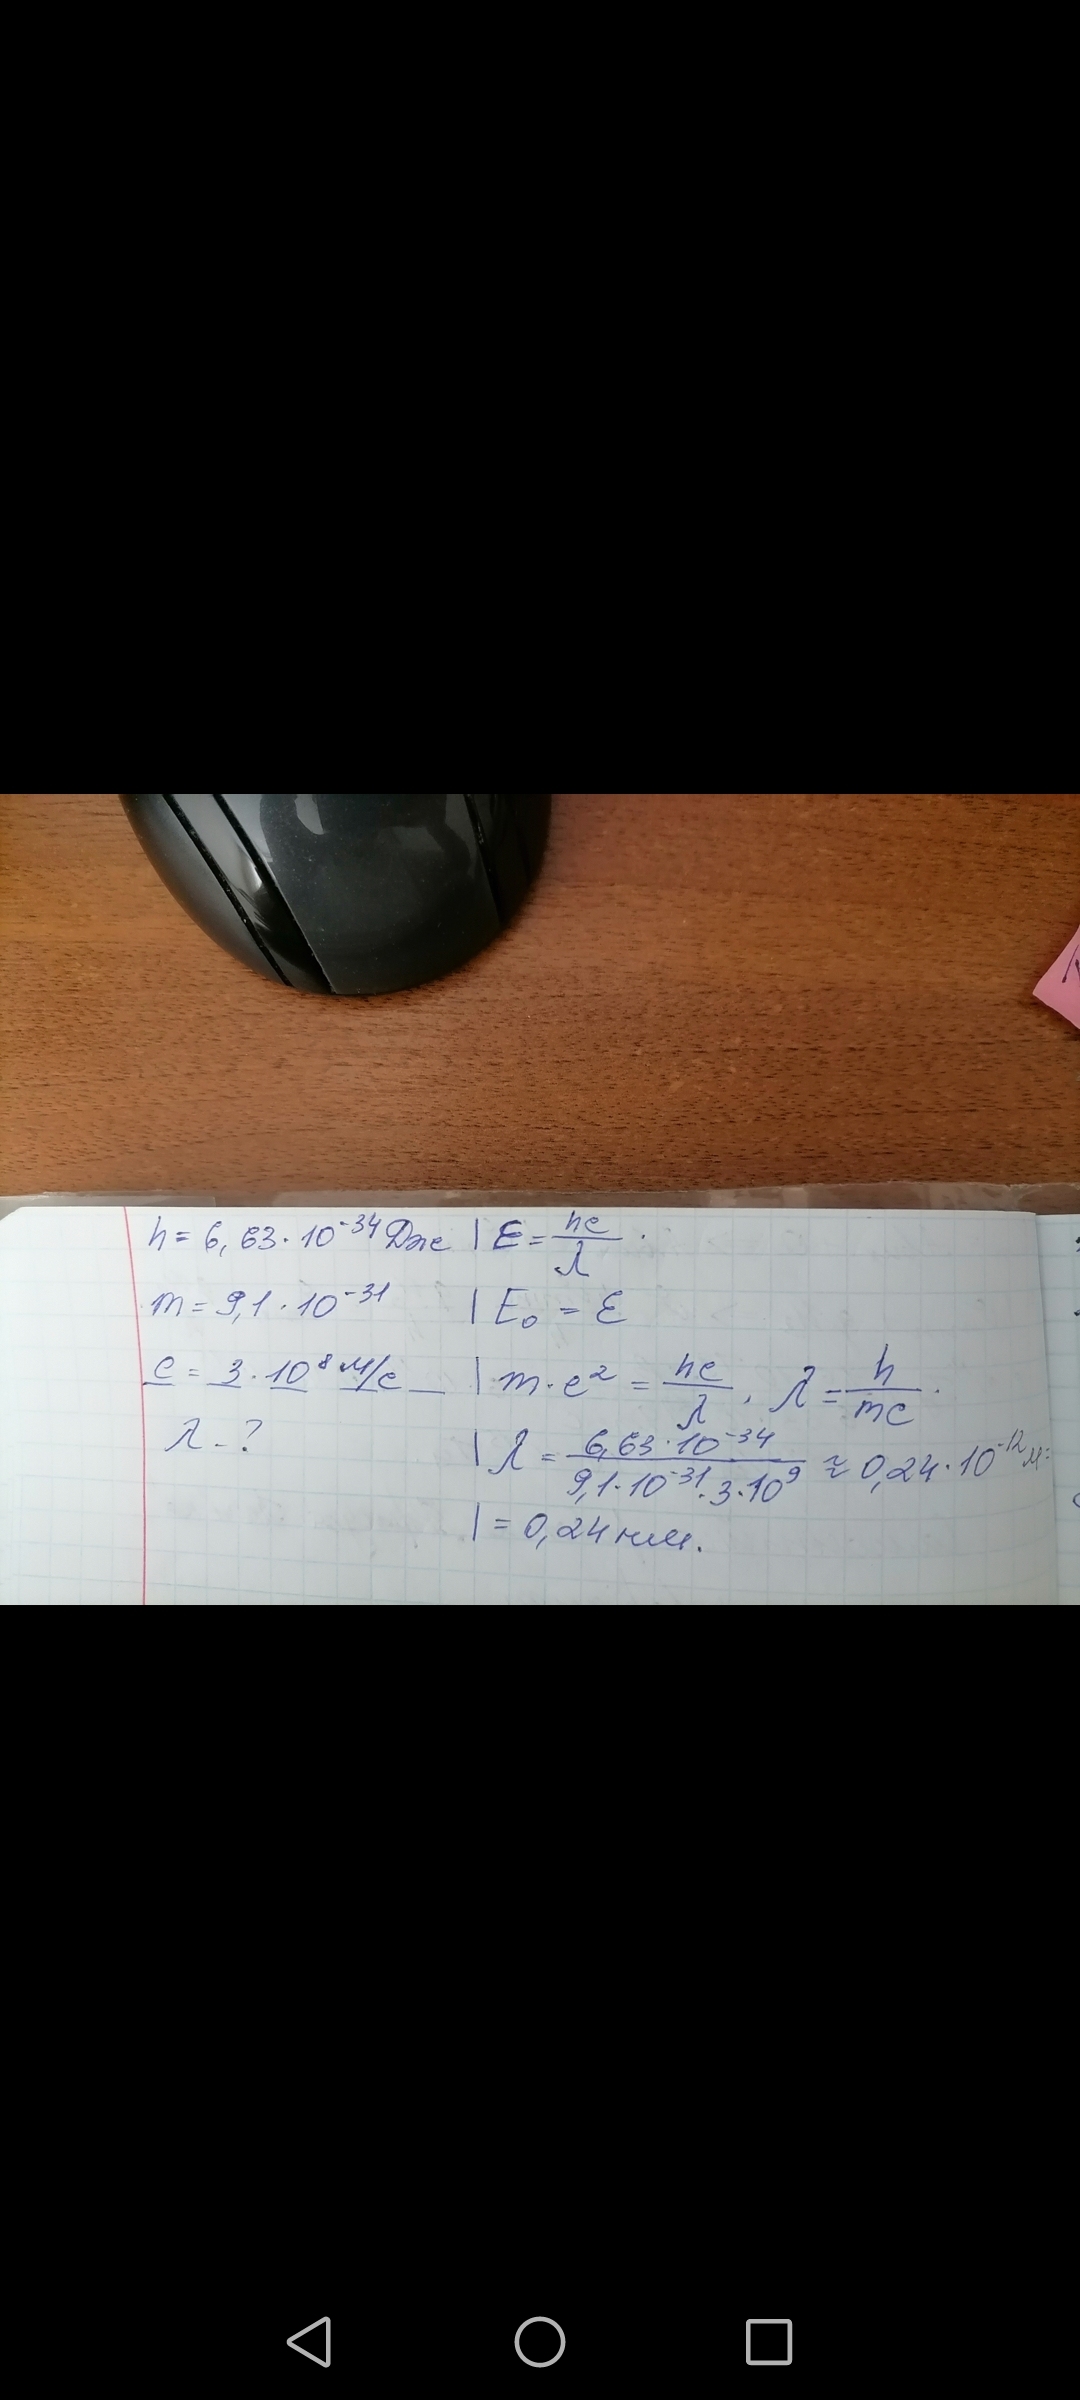 h = 6,63·10⁻³⁴ Дж | E = hc/λ.
m = 9,1·10⁻³¹ | E₀ = ε
c = 3·10⁸ м/с | m·c² = hc/λ, λ = h/mc.
λ - ? | λ = 6,63·10⁻³⁴/9,1·10⁻³¹·3·10⁹ ≈ 0,24·10⁻¹² м =
| = 0,24 пм.